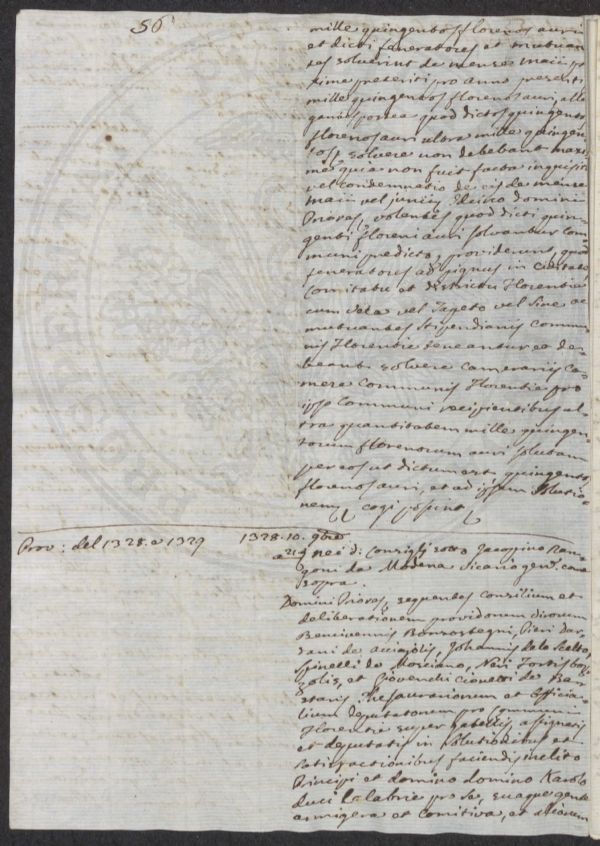 56
mille quingentos florenos auri
et dicti feneratores et mutuan=
tes solverint de mense maii pr
xime preteriti pro anno presenti
mille quingentos florenos auri, alle
gantes postea quod dictos quingento
florenos auri ultra mille quingen
tos, solvere non debebant maxi
me quia non fuit facta inquisitio
vel condemnatio de eis de mense
maii vel junii. Domini
Priores, volentes quod dicti quin
genti floreni auri solvantur Com
muni predicto, providerunt, quod
feneratores ad pignus in Civitate
Comitatu et districtu Florentie
cum vela vel Tapeto vel sine ac
mutuantes stipendiariis commu
nis Florentie teneantur et de=
beant solvere camerariis Ca=
mere Communis Florentie pro
ipso Communi recipientibus ul=
tra quantitatem mille quingen=
torum florenorum auri solutam
per eos ut dictum est quingento
florenos auri, et ad ipsam solutio
nem cogi possint
Prov: del 1328. a 1329 1328. 10. 9bre
nei di: Consiglj sotto Jacopino Ran
goni da Modena Vicario gen: come
sopra.
Domini Priores, sequentes consilium et
deliberationem providorum virorum
Bencivennis Bonsostegni, Pieri Dar
dani de acciaiolis, Johannis dela Scelto,
Spinelli de Mosciano, Neri Fortis
zolis, et Giovenchi de Bas
taris Thesaurariorum et Officia=
lium deputatorum pro Communi
Florentie super gabellis assignatis
et deputatis in solutionibus et
satisfactionibus faciendis inclito
Principi et domino domino Karolo
duci Calabrie pro se, suaque gente
armigera et comitiva, et aliorum